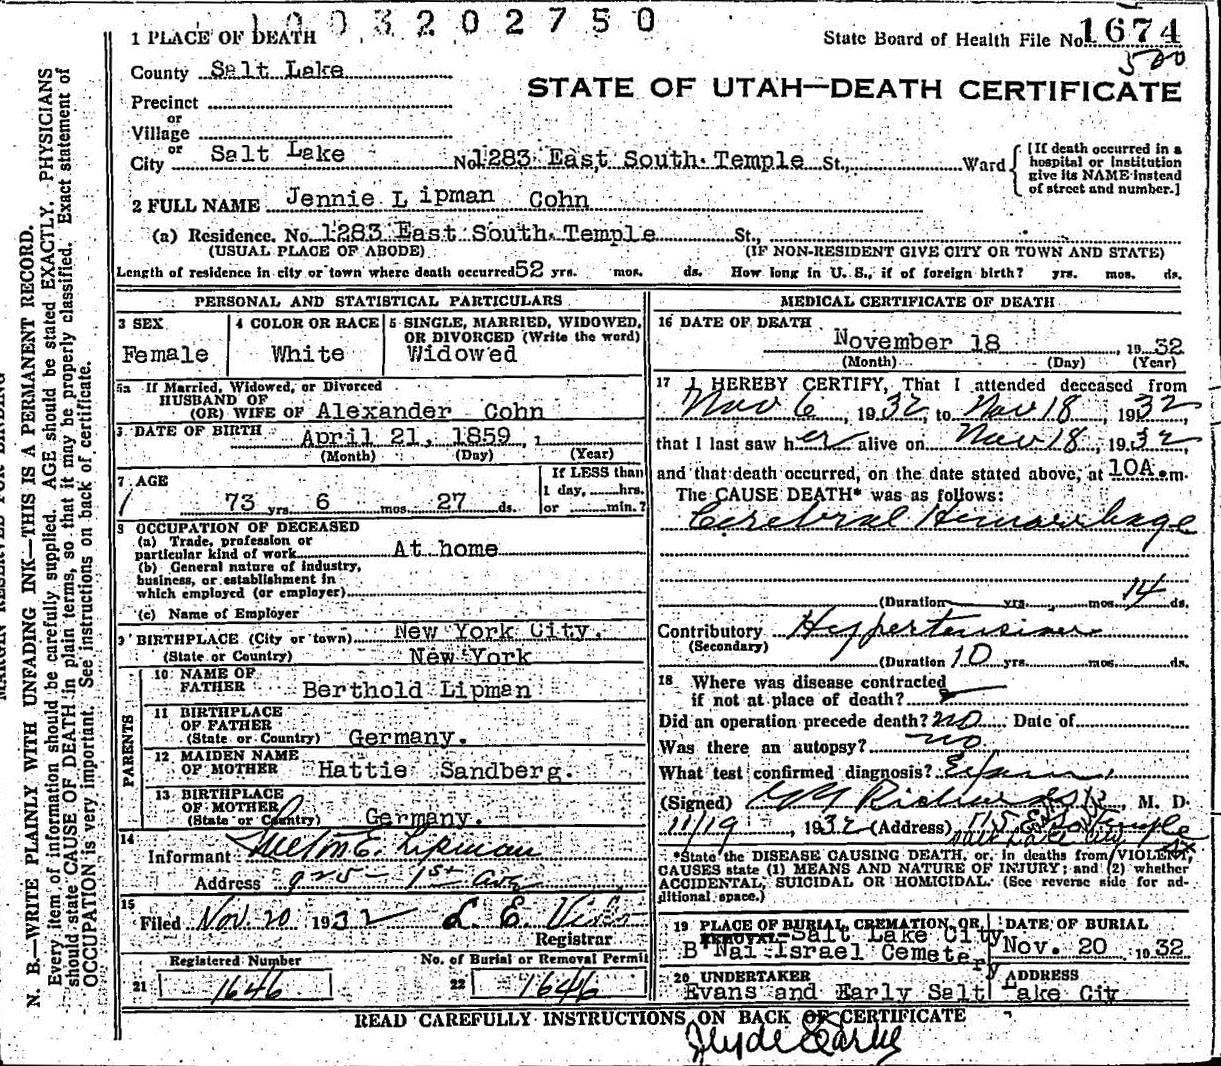 1003202750
1 PLACE OF DEATH
State Board of Health File No. 1674
500
County Salt Lake
STATE OF UTAH—DEATH CERTIFICATE
Precinct
or
Village
or
City Salt Lake No. 1283 East South Temple St., Ward
[If death occurred in a
hospital or institution
give its NAME instead
of street and number.]
2 FULL NAME Jennie L ipman Cohn
(a) Residence. No. 1283 East South Temple St.,
(USUAL PLACE OF ABODE) (IF NON-RESIDENT GIVE CITY OR TOWN AND STATE)
Length of residence in city or town where death occurred 52 yrs. mos. ds. How long in U. S., if of foreign birth? yrs. mos. ds.
PERSONAL AND STATISTICAL PARTICULARS
3 SEX
Female
4 COLOR OR RACE
White
5 SINGLE, MARRIED, WIDOWED,
OR DIVORCED (Write the word)
Widowed
5a If Married, Widowed, or Divorced
HUSBAND OF
(OR) WIFE OF Alexander Cohn
DATE OF BIRTH April 21, 1859
(Month) (Day) (Year)
7 AGE
73 yrs. 6 mos. 27 ds.
If LESS than
1 day, ......hrs.
or ......min.?
8 OCCUPATION OF DECEASED
(a) Trade, profession or
particular kind of work At home
(b) General nature of industry,
business, or establishment in
which employed (or employer)
(c) Name of Employer
9 BIRTHPLACE (City or town) New York City.
(State or Country) New York
PARENTS
10 NAME OF
FATHER Berthold Lipman
11 BIRTHPLACE
OF FATHER
(State or Country) Germany.
12 MAIDEN NAME
OF MOTHER Hattie Sandberg.
13 BIRTHPLACE
OF MOTHER
(State or Country) Germany.
14
Informant Milton E. Lipman
Address 925 - 1st Ave
15
Filed Nov. 20 1932 L. E.
Registrar
Registered Number
21 1646
No. of Burial or Removal Permit
22 1646
MEDICAL CERTIFICATE OF DEATH
16 DATE OF DEATH
November 18, 1932
(Month) (Day) (Year)
17 I HEREBY CERTIFY, That I attended deceased from
Nov 6, 1932 to Nov 18, 1932
that I last saw her alive on Nov 18, 1932
and that death occurred, on the date stated above, at 10A.m.
The CAUSE DEATH* was as follows:
Cerebral Hemorrhage
(Duration yrs. mos. 14 ds.
Contributory Hypertension
(Secondary)
(Duration 10 yrs. mos. ds.
18 Where was disease contracted
if not at place of death?
Did an operation precede death? no Date of
Was there an autopsy? no
What test confirmed diagnosis? Exam
(Signed) Richards, M. D.
11/19, 1932 (Address) 715 E So Temple
Salt Lake City
*State the DISEASE CAUSING DEATH, or, in deaths from VIOLENT
CAUSES state (1) MEANS AND NATURE OF INJURY; and (2) whether
ACCIDENTAL, SUICIDAL OR HOMICIDAL. (See reverse side for ad-
ditional space.)
19 PLACE OF BURIAL, CREMATION, OR
REMOVAL Salt Lake City
B'Nai Israel Cemetery
DATE OF BURIAL
Nov. 20 1932
20 UNDERTAKER
Evans and Early Salt
ADDRESS
Lake City
READ CAREFULLY INSTRUCTIONS ON BACK OF CERTIFICATE
MARGIN RESERVED FOR BINDING
N. B.—WRITE PLAINLY WITH UNFADING INK—THIS IS A PERMANENT RECORD.
Every item of information should be carefully supplied. AGE should be stated EXACTLY. PHYSICIANS
should state CAUSE OF DEATH in plain terms, so that it may be properly classified. Exact statement of
OCCUPATION is very important. See instructions on back of certificate.